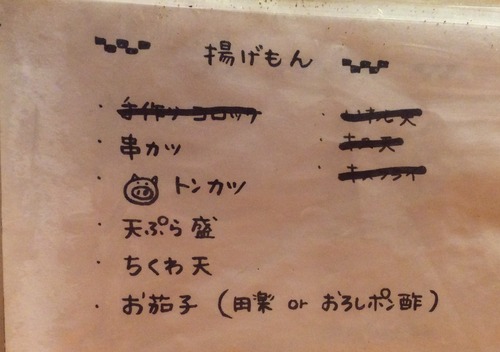 揚げもん
手作りコロッケ
串カツ
トンカツ
天ぷら盛
ちくわ天
お茄子(田楽 or おろしポン酢)
キス天
キスフライ